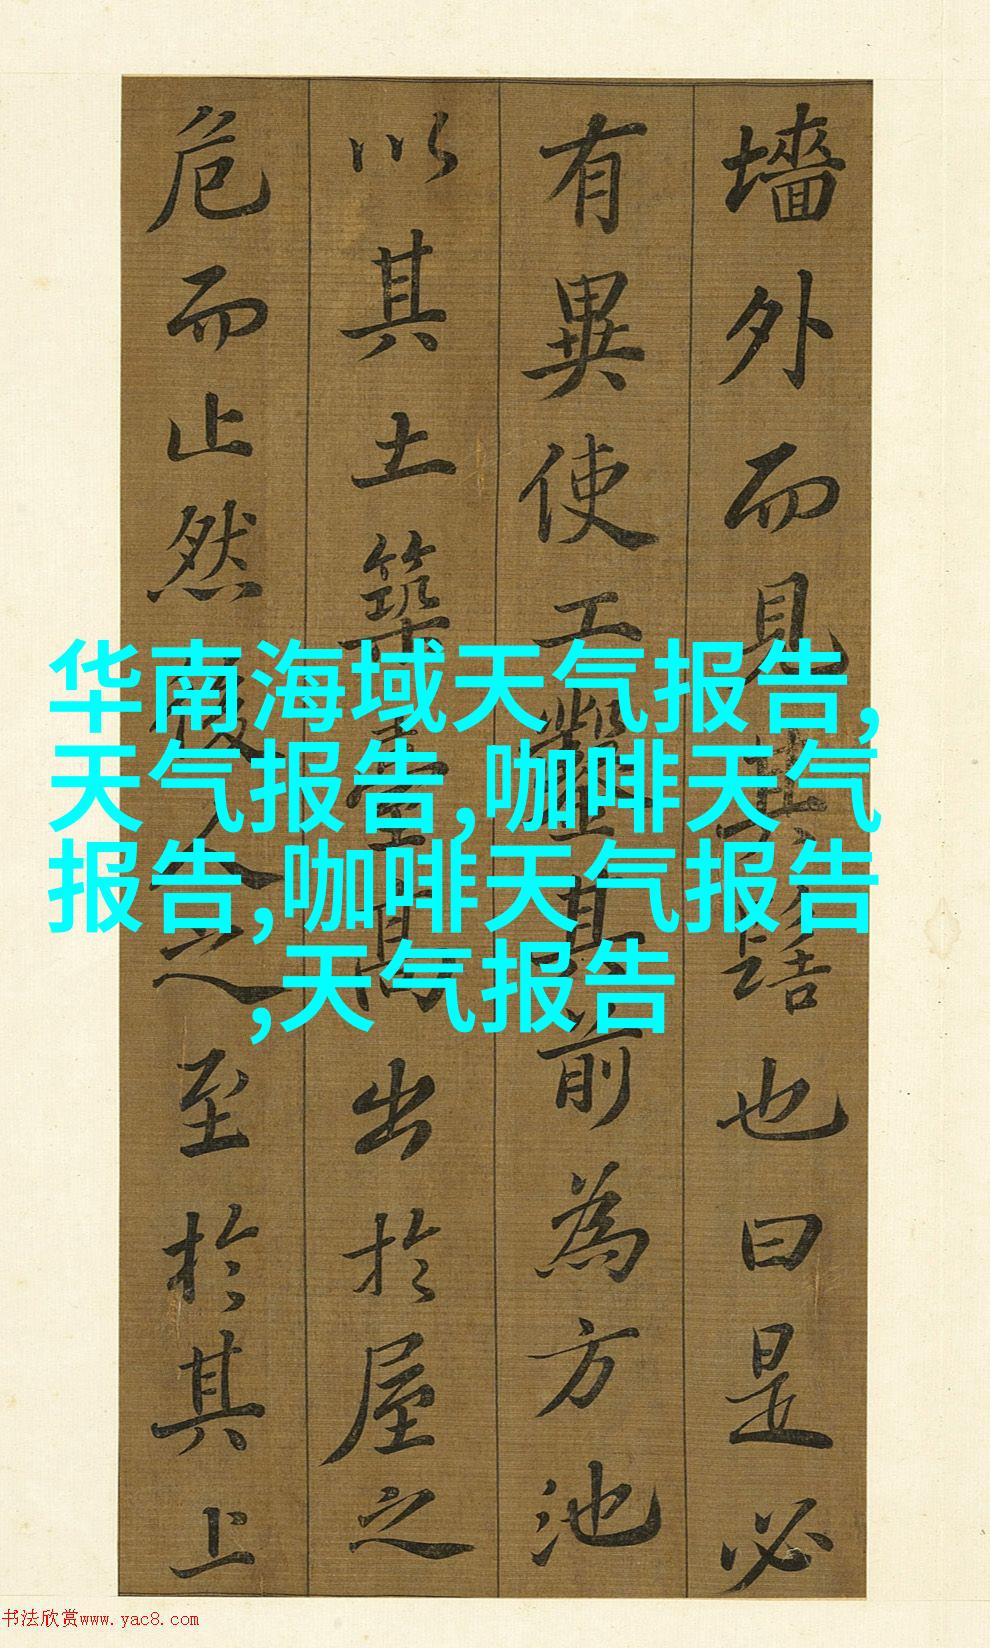 墻外而見其髻也曰是必
有異使工鑿其前為方池
以其土築臺高出於屋之
危而止然後人之至於其上
华南海域天气报告,
天气报告,咖啡天气
报告,咖啡天气报告
,天气报告
书法欣赏www.yac8.com